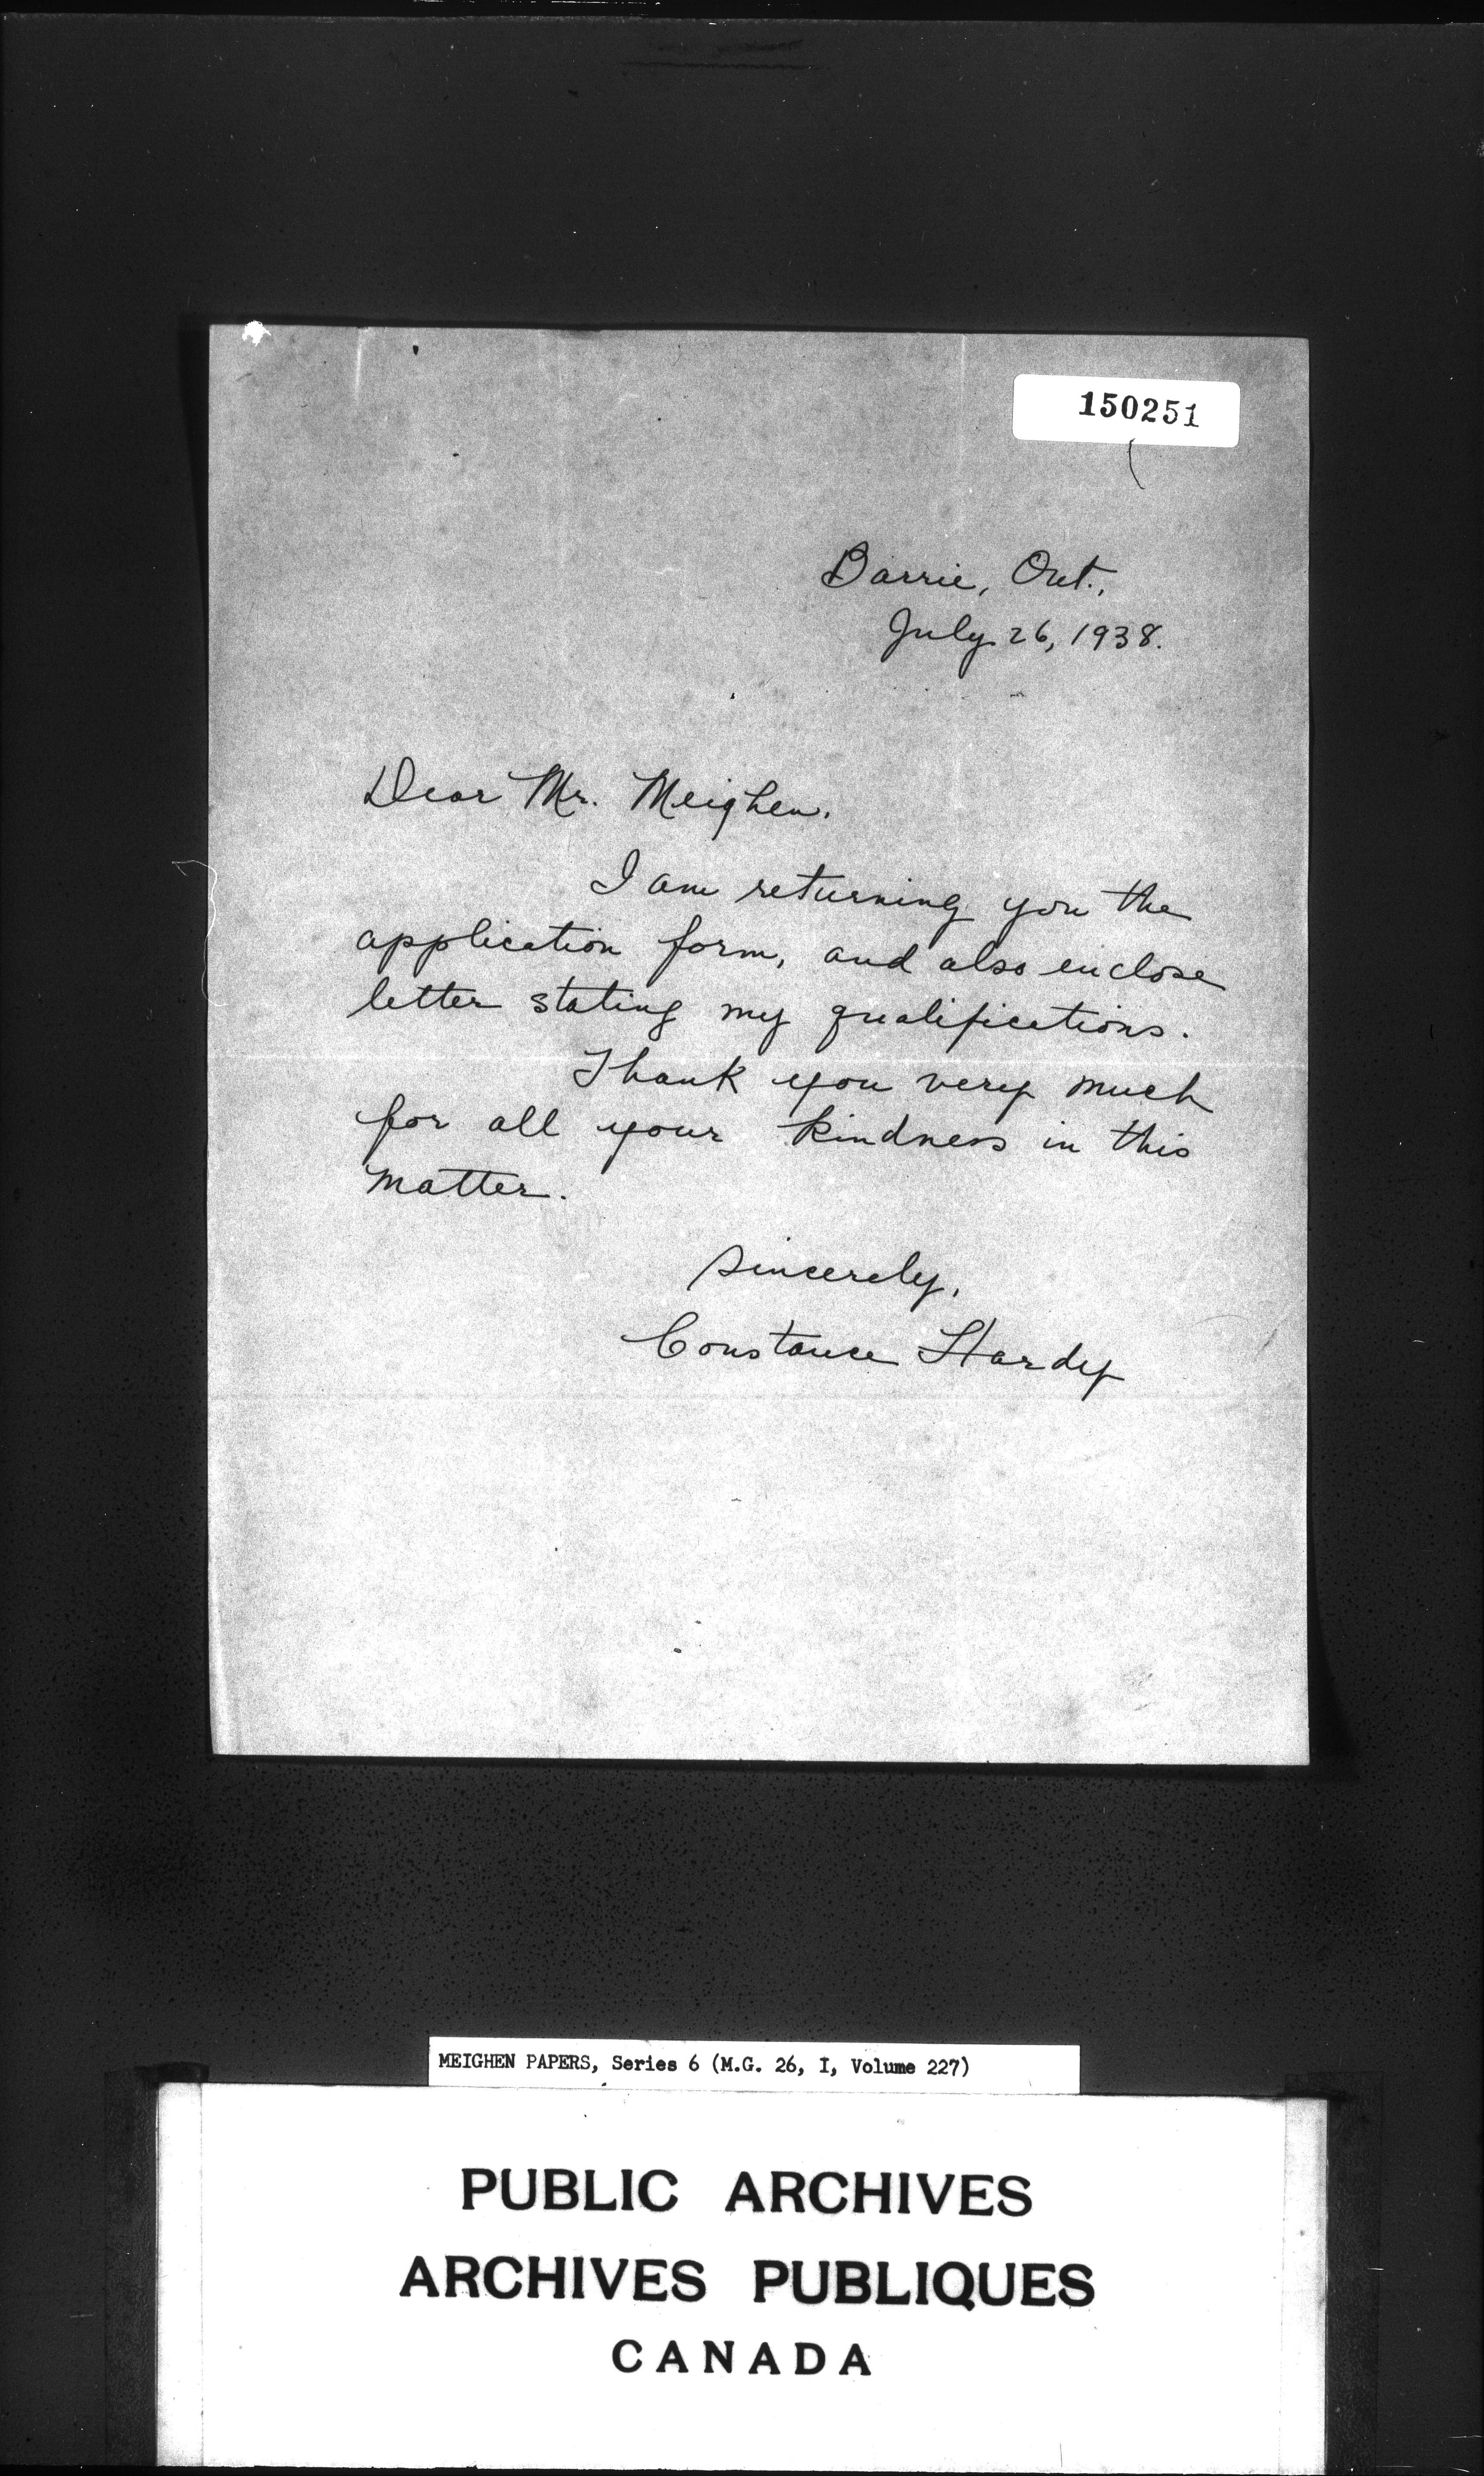 150251
Barrie, Ont.,
July 26, 1938.
Dear Mr. Meighen.
I am returning you the
application form, and also enclose
letter stating my qualifications.
Thank you very much
for all your kindness in this
matter.
Sincerely,
Constance Hardy
MEIGHEN PAPERS, Series 6 (M.G. 26, I, Volume 227)
PUBLIC ARCHIVES
ARCHIVES PUBLIQUES
CANADA